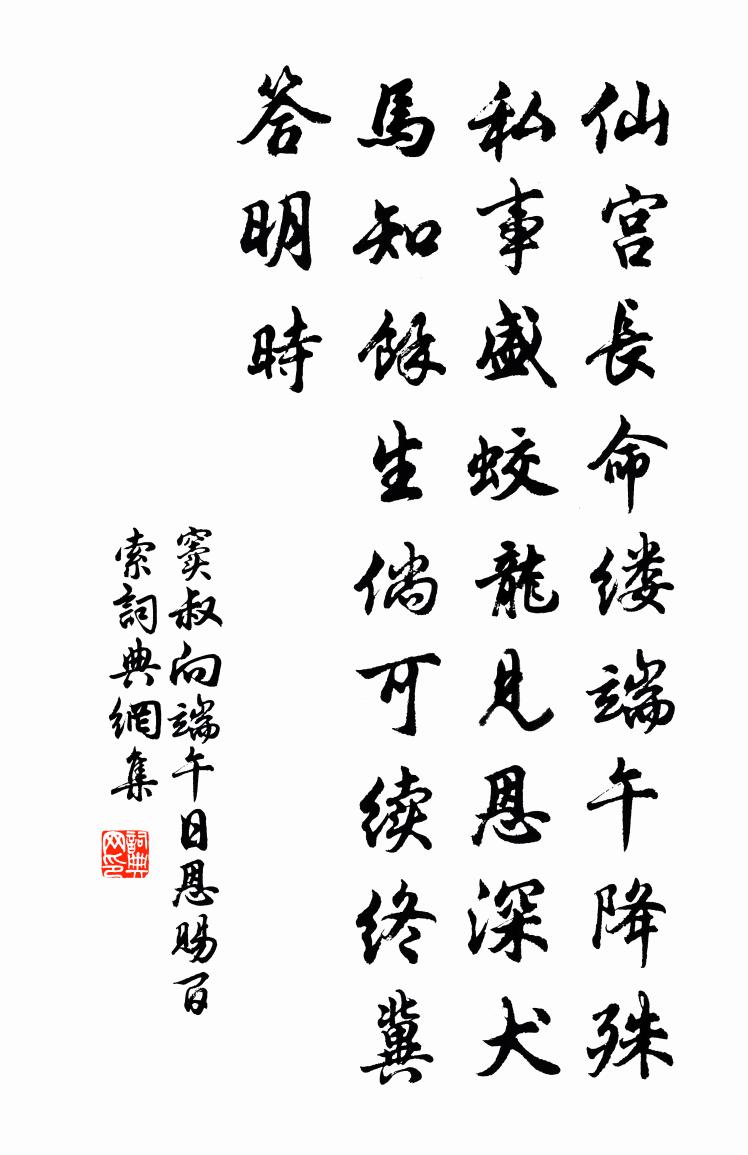 仙宫長命缕端午降殊
私事盛蛟龍見恩深犬
馬知餘生倘可续終冀
答明時
窦叔向端午日恩赐百
索詞典網集
詞典网印